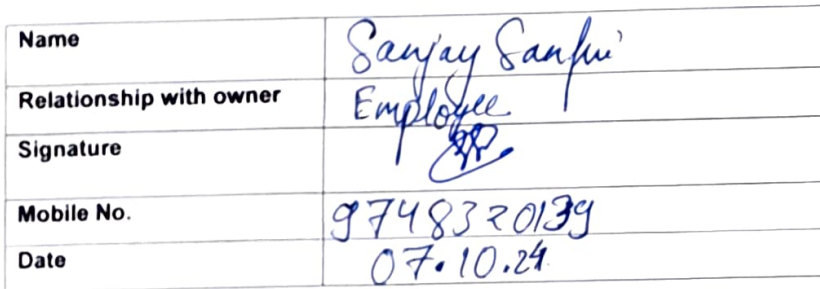 Name Sanjay Sanfui
Relationship with owner Employee
Signature
Mobile No. 9748320139
Date 07.10.24